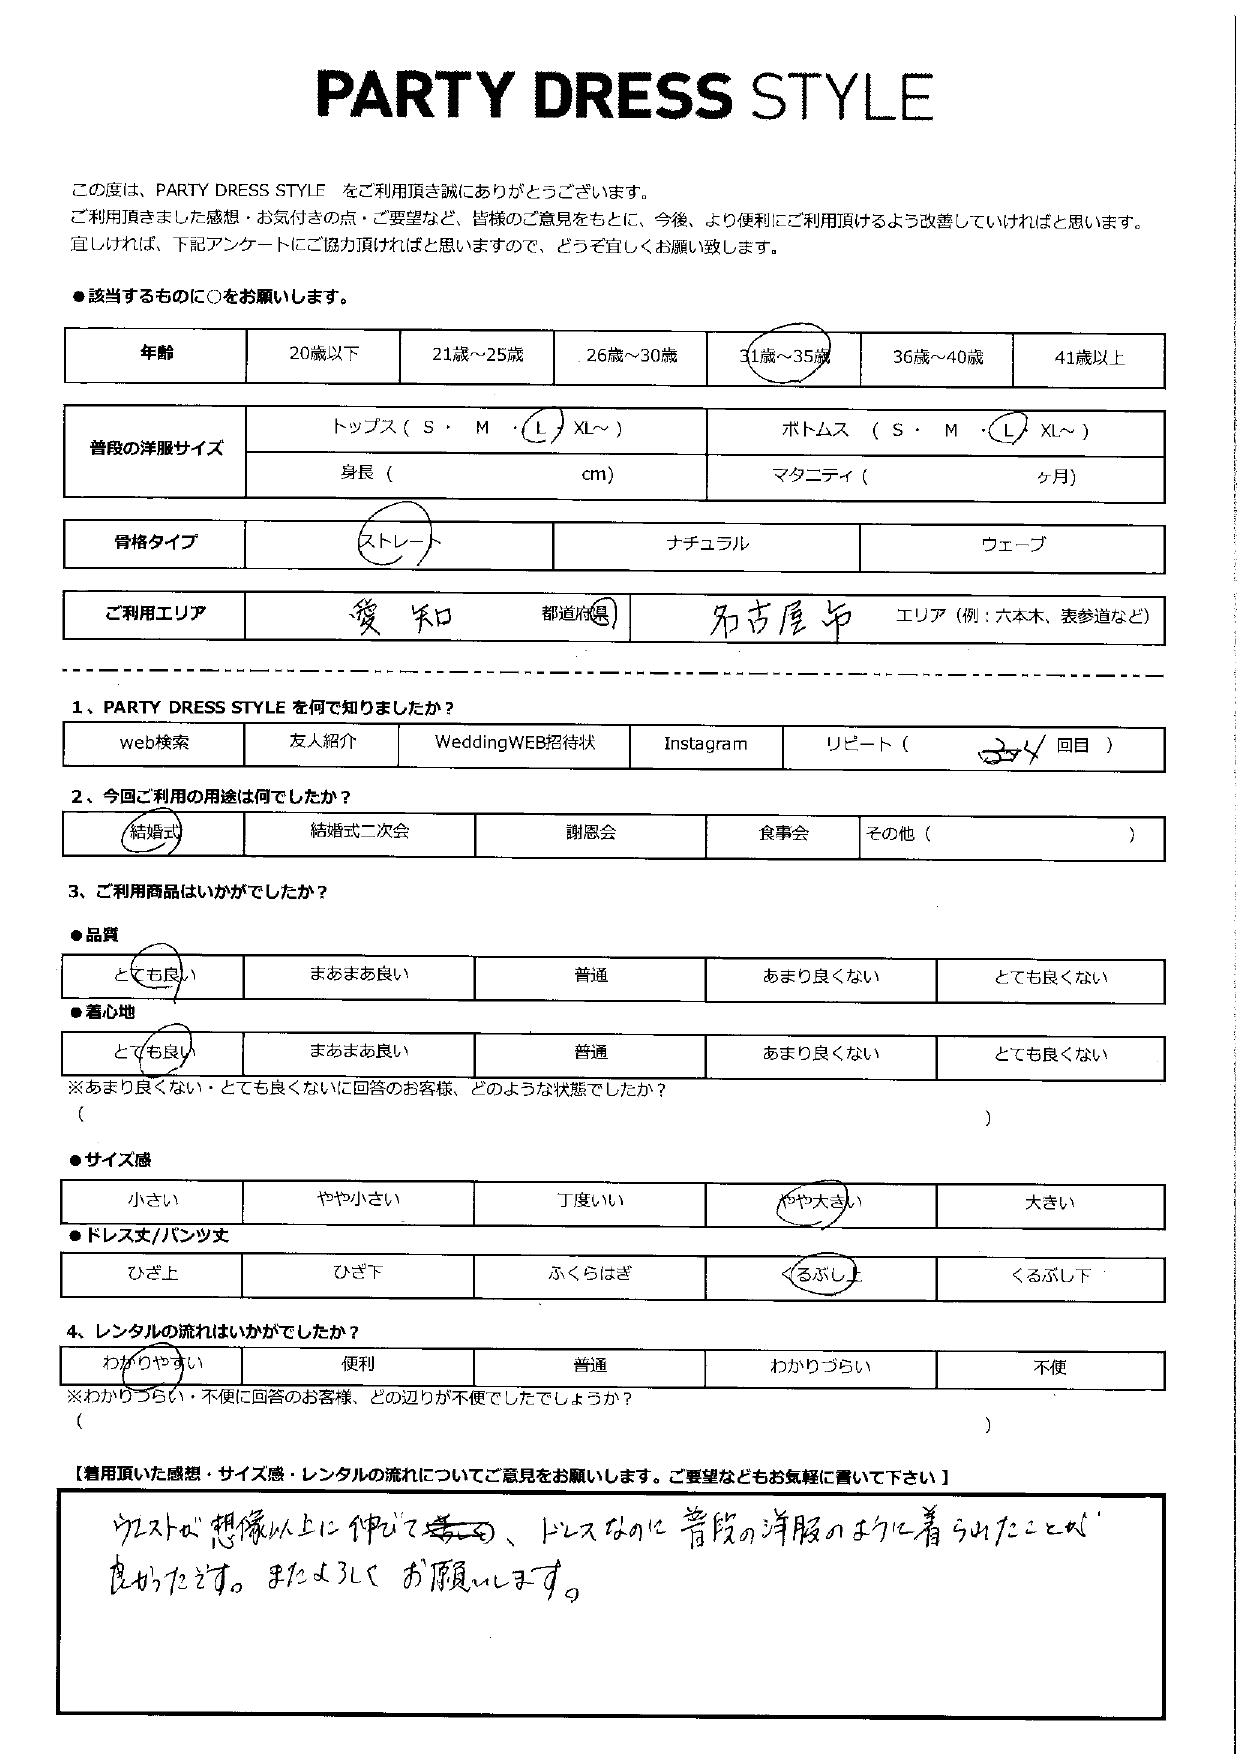 PARTY DRESS STYLE
この度は、PARTY DRESS STYLE をご利用頂き誠にありがとうございます。
ご利用頂きました感想・お気付きの点・ご要望など、皆様のご意見をもとに、今後、より便利にご利用頂けるよう改善していければと思います。
宜しければ、下記アンケートにご協力頂ければと思いますので、どうぞ宜しくお願い致します。
●該当するものに○をお願いします。
年齢 20歳以下 21歳～25歳 26歳～30歳 31歳～35歳 36歳～40歳 41歳以上
普段の洋服サイズ トップス ( S ・ M ・ L ・ XL～ ) ボトムス ( S ・ M ・ L ・ XL～ )
身長 ( cm) マタニティ ( ヶ月)
骨格タイプ ストレート ナチュラル ウェーブ
ご利用エリア 愛知 都道府県 名古屋市 エリア（例：六本木、表参道など）
1、PARTY DRESS STYLE を何で知りましたか？
web検索 友人紹介 WeddingWEB招待状 Instagram リピート ( 4 回目 )
2、今回ご利用の用途は何でしたか？
結婚式 結婚式二次会 謝恩会 食事会 その他 ( )
3、ご利用商品はいかがでしたか？
●品質
とても良い まあまあ良い 普通 あまり良くない とても良くない
●着心地
とても良い まあまあ良い 普通 あまり良くない とても良くない
※あまり良くない・とても良くないに回答のお客様、どのような状態でしたか？
( )
●サイズ感
小さい やや小さい 丁度いい やや大きい 大きい
●ドレス丈/パンツ丈
ひざ上 ひざ下 ふくらはぎ くるぶし上 くるぶし下
4、レンタルの流れはいかがでしたか？
わかりやすい 便利 普通 わかりづらい 不便
※わかりづらい・不便に回答のお客様、どの辺りが不便でしたでしょうか？
( )
【着用頂いた感想・サイズ感・レンタルの流れについてご意見をお願いします。ご要望などもお気軽に書いて下さい】
ウエストが想像以上に伸びて、ドレスなのに普段の洋服のように着られたことが
良かったです。またよろしくお願いします。